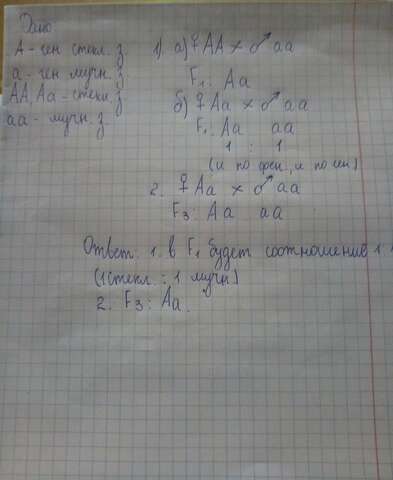 Дано
А - ген стекл. з.
а - ген мучн. з.
АА, Аа - стекл. з.
аа - мучн. з.
1) а) ♀ АА × ♂ аа
F₁: Аа
б) ♀ Аа × ♂ аа
F₁: Аа аа
1 : 1
(и по фен., и по ген)
2. ♀ Аа × ♂ аа
F₃: Аа аа
Ответ: 1. в F₁ будет соотношение 1:1
(1 стекл. : 1 мучн)
2. F₃: Аа.